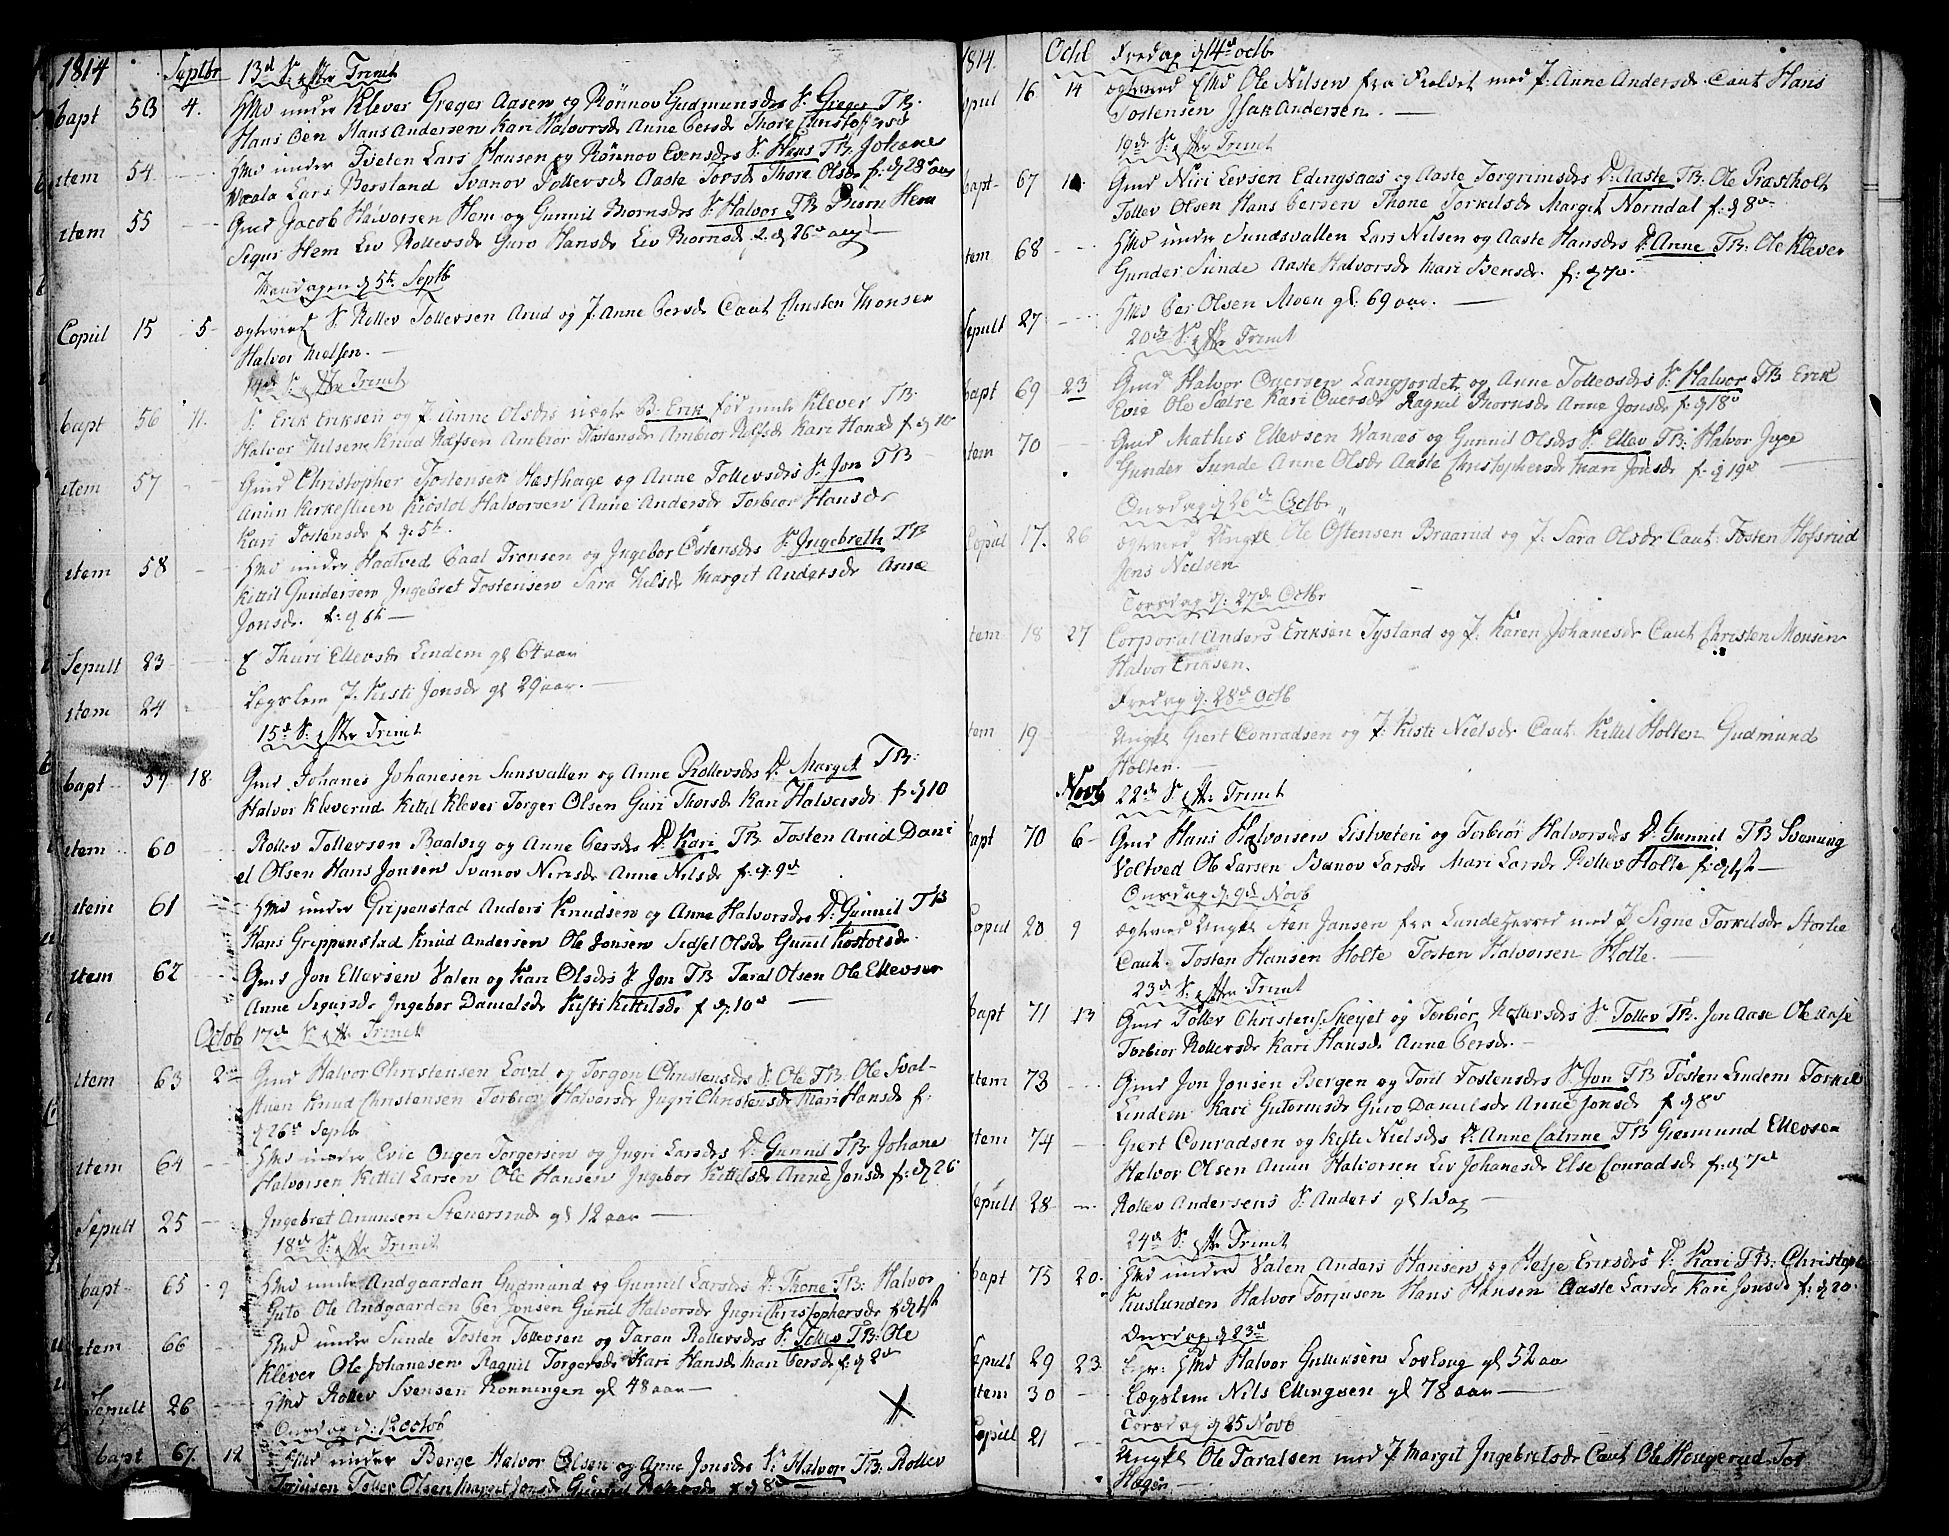 1814 Septbr 13d S: efter Trinit
bapt 53 4. Hmd under Klever Greger Aasen og Rönnov Gudmunsdr S: Greger TB.
Hans Oen Hans Andersen Kari Halvorsdr Anne Persdr Thore Christophersdr
item 54 Hmd under Tveten Lars Hansen og Rönnov Evensdr S: Hans TB: Johane
Vaala Lars Bersland Svanov Tollevsdr Aaste Torsdr Thore Olsdr f: d 28 aug
item 55 Gmd Jacob Halvorsen Hem og Gunnil Biornsdr S: Halvor TB Biorn Hem
Sigur Hem Liv Rollevsdr Guro Hansdr Liv Biornsdr f. d 26 aug
Mandagen d 5te Septb
Copul 15 5 ægteviet S. Rollev Tollevsen Aarud og P. Anne Persdr Caut Christen Monsen
Halvor Nielsen.
14de S. efter Trinit
bapt 56 11. S. Erik Eriksen og P. Anne Olsdr uægte B. Erik fød under Klever TB.
Halvor Nielsen Knud Rolfsen Ambior Tostensdr Ambior Rolfsdr Kari Hansd f d 10
item 57 Gmd Christopher Tostensen Hæsthage og Anne Tollevsdr S. Jon TB
Anun Kirkestuen Kiöstol Halvorsen Anne Andersdr Torbior Hansdr
Kari Tostensdr f d. 5te.
item 58 Hmd under Haatved Paal Tronsen og Ingebor Östensdr S. Ingebreth TB
Kittil Gundersen Ingebret Tostensen Sara Nilsdr Margit Andersdr Anne
Jonsdr. f: d 6te
Sepult 23 Thuri Ellevsdr Lindem gl 64 aar
item 24 Lægslem P. Kisti Jonsdr gl 29 aar.
15d S. efter Trinit
bapt 59 18. Gmd Johanes Johanesen Sunsvallen og Anne Rollevsdr D. Margit TB:
Halvor Kleverud Kittil Klever Torger Olsen Guri Thorsdr Kari Halvorsdr f d 10
item 60 Rollev Tollevsen Baalvig og Anne Persdr D. Kari TB Tosten Aarud Dani
el Olsen Hans Jonsen Svanov Nirisdr Anne Nilsdr f: d. 9d
item 61 Hmd under Gripenstad Anders Knudsen og Anne Halvorsdr D. Gunnil TB
Hans Grippenstad Knud Andersen Ole Jonsen Sidsel Olsdr Gunnil Kostolsdr
item 62 Gmd Jon Ellevsen Valen og Kari Olsdr S. Jon TB Taral Olsen Ole Ellevsen
Anne Sigursdr Ingebor Danielsdr Kisti Kittilsdr f d. 10d
Octob 17de S. efter Trinit
item 63 2 Gmd Halvor Christensen Loval og Torgon Christensdr S. Ole TB. Ole Sval-
Knud Christensen Torbior Halvorsdr Ingri Christensdr Mari Hansdr f:
d 26d Septb
item 64 Hmd under Evie Ougen Torgersen og Ingri Larsdr D. Gunnil TB Johane
Halvorsen Kittil Larsen Ole Hansen Ingebor Kittilsdr Anne Jonsdr f: d 26
Sepult 25 Ingebret Anunsen Stenersrud gl 12 aar
18d S. efter Trinit
bapt 65 9 Hmd under Andgaarden Gudmund og Gunnil Larsdr D. Thone TB: Halvor
Guto Ole Andgaarden Per Jonsen Gunil Halvorsdr Ingri Christophersdr f d 1st
item 66 Hmd under Sunde Tosten Tollevsen og Taran Rollevsdr S. Tollev TB: Ole
Klever Ole Johanesen Ragnil Torgersdr Kari Hansdr Mari Persdr f: d 2d
Sepult 26 Hmd Rollev Svensen Rönningen gl 48 aar
Onsdag d. 12 octob
bapt 67. 12 Hmd under Berge Halvor Olsen og Anne Jonsdr S. Halvor TB. Rollev
Torjusen Tollev Olsen Margit Jonsdr Gunnil Rollevsdr f d 8d
1814. Octbl Fredag d 14d octb
Copul 16 14 ægteviet Hmd Ole Nilsen fra med P. Anne Andersdr Caut Hans
Tostensen Isak Andersen.
19de S. efter Trinit
bapt 67 16. Gmd Niri Levsen Edingsaas og Aaste Torgrimsdr D. Aaste TB: Ole Præstholt
Tollev Olsen Hans Persen Thone Torkilsdr Margit Norndal f: d 8d
item 68 Hmd under Sundsvallen Lars Nilsen og Aaste Hansdr D. Anne TB: Ole Klever
Gunder Sunde Aaste Halvorsdr Mari Svensdr. f: d 7d.
Sepult 27 Hmd Per Olsen Moen gl. 69 aar.
20de S. efter Trinit
bapt 69 23 Gmd Halvor Oversen Langjordet og Anne Tollevsdr S. Halvor TB Erik
Evie Ole Sætre Kari Oversdr Ragnil Thornsdr Anne Jonsdr f: d 18d
item 70 Gmd Mathis Ellevsen Vanaas og Gunnil Olsdr S. Ellev TB. Halvor Juve
Gunder Sunde Anne Olsdr Aaste Christophersdr Mari Jonsdr f: d 19d
Onsdag d 26d Octbr
Copul 17. 26 ægteviet Ungkl Ole Ostensen Braarud og P. Sara Olsdr Caut: Tosten Hofsrud
Jens Nielsen
Torsdag d: 27d Octbr
item 18 27 Corporal Anders Eriksen Tysland og P. Karen Johanesdr Caut Christen Monsen
Halvor Eriksen.
Fredag d: 28d Octb
item 19 Ungkl Giert Conradsen og P. Kisti Nielsdr Caut. Kittil Holten Gudmund
Holten.
Novb 22de S. efter Trinit
bapt 70 6 Gmd Hans Halvorsen Listveten og Torbiör Halvorsdr D. Gunnil TB Svenung
Voltved Ole Larsen Svanov Larsdr Mari Larsdr Rollev Holte f: d 1st
Onsdag d. 9de Novb
Copul 20 9 ægteviet Ungkl Aen Jansen fra Lundeherred med P Signe Torkilsdr Stortie
Caut. Tosten Hansen Holte Tosten Halvorsen Holte.
23de S. efter Trinit
bapt 71 13 Gmd Tollev Christens. Skeijet og Torbior Rollevsdr S. Tollev TB. Jon Aase Ole Aase
Torbior Rollevsdr Kari Hansdr Anne Persdr.
item 73 Gmd Jon Jonsen Bergen og Toril Tostensdr S. Jon TB Tosten Lindem Torkil
Lindem Kari Gutormsdr Guro Danielsdr Anne Jonsdr f d 8d
item 74 Giert Conradsen og Kisti Nielsdr D. Anne Catrine TB Giermund Ellevsen
Halvor Olsen Anun Halvorsen Liv Johanesdr Else Conradsdr f: d 7d
Sepult 28 Rollev Andersens S. Anders gl 1 dag
24de S. efter Trinit
bapt 75 20. Hmd under Valen Anders Hansen og Helje Eriksdr D: Kari TB: Christoph
Kuslunden Halvor Torjusen Hans Hansen Aaste Larsdr Kari Jonsdr f: d 20.
Onsdag d 23d
Sepult 29 23. Hmd Halvor Gulleksen Sorboug gl 52 aa
item 30 Lægslem Nils Ellingsen gl 78 aar
Torsdag d 25 Novb
Copull 21 Ungkl Ole Taralsen med P. Margit Ingebretsdr Caut Ole Hougerud Tor
Hægen